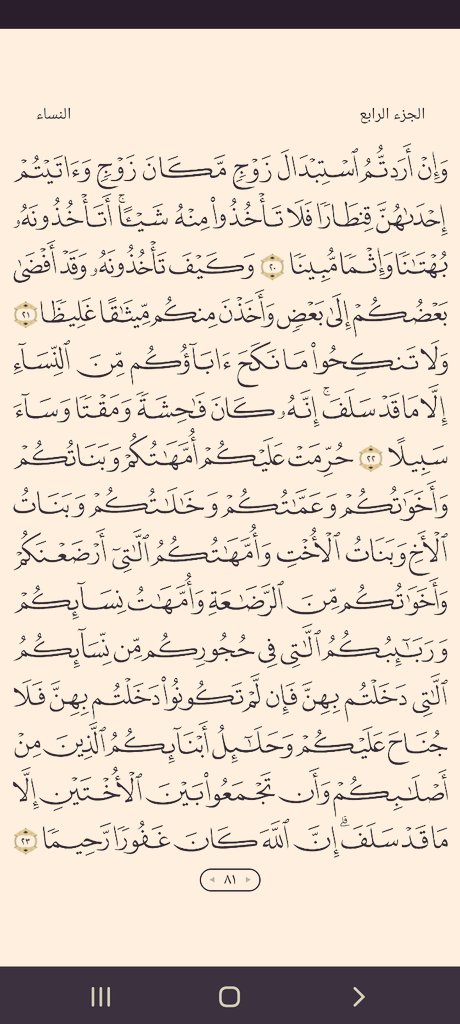 الجزء الرابع
النساء
وَإِنْ أَرَدتُّمُ ٱسْتِبْدَالَ زَوْجٍ مَّكَانَ زَوْجٍ وَءَاتَيْتُمْ
إِحْدَىٰهُنَّ قِنطَارًا فَلَا تَأْخُذُوا۟ مِنْهُ شَيْـًٔا ۚ أَتَأْخُذُونَهُۥ
بُهْتَـٰنًا وَإِثْمًا مُّبِينًا ٢٠ وَكَيْفَ تَأْخُذُونَهُۥ وَقَدْ أَفْضَىٰ
بَعْضُكُمْ إِلَىٰ بَعْضٍ وَأَخَذْنَ مِنكُم مِّيثَـٰقًا غَلِيظًا ٢١
وَلَا تَنكِحُوا۟ مَا نَكَحَ ءَابَآؤُكُم مِّنَ ٱلنِّسَآءِ
إِلَّا مَا قَدْ سَلَفَ ۚ إِنَّهُۥ كَانَ فَـٰحِشَةً وَمَقْتًا وَسَآءَ
سَبِيلًا ٢٢ حُرِّمَتْ عَلَيْكُمْ أُمَّهَـٰتُكُمْ وَبَنَاتُكُمْ
وَأَخَوَٰتُكُمْ وَعَمَّـٰتُكُمْ وَخَـٰلَـٰتُكُمْ وَبَنَاتُ
ٱلْأَخِ وَبَنَاتُ ٱلْأُخْتِ وَأُمَّهَـٰتُكُمُ ٱلَّـٰتِىٓ أَرْضَعْنَكُمْ
وَأَخَوَٰتُكُم مِّنَ ٱلرَّضَـٰعَةِ وَأُمَّهَـٰتُ نِسَآئِكُمْ
وَرَبَـٰٓئِبُكُمُ ٱلَّـٰتِى فِى حُجُورِكُم مِّن نِّسَآئِكُمُ
ٱلَّـٰتِى دَخَلْتُم بِهِنَّ فَإِن لَّمْ تَكُونُوا۟ دَخَلْتُم بِهِنَّ فَلَا
جُنَاحَ عَلَيْكُمْ وَحَلَـٰٓئِلُ أَبْنَآئِكُمُ ٱلَّذِينَ مِنْ
أَصْلَـٰبِكُمْ وَأَن تَجْمَعُوا۟ بَيْنَ ٱلْأُخْتَيْنِ إِلَّا
مَا قَدْ سَلَفَ ۗ إِنَّ ٱللَّهَ كَانَ غَفُورًا رَّحِيمًا ٢٣
٨١